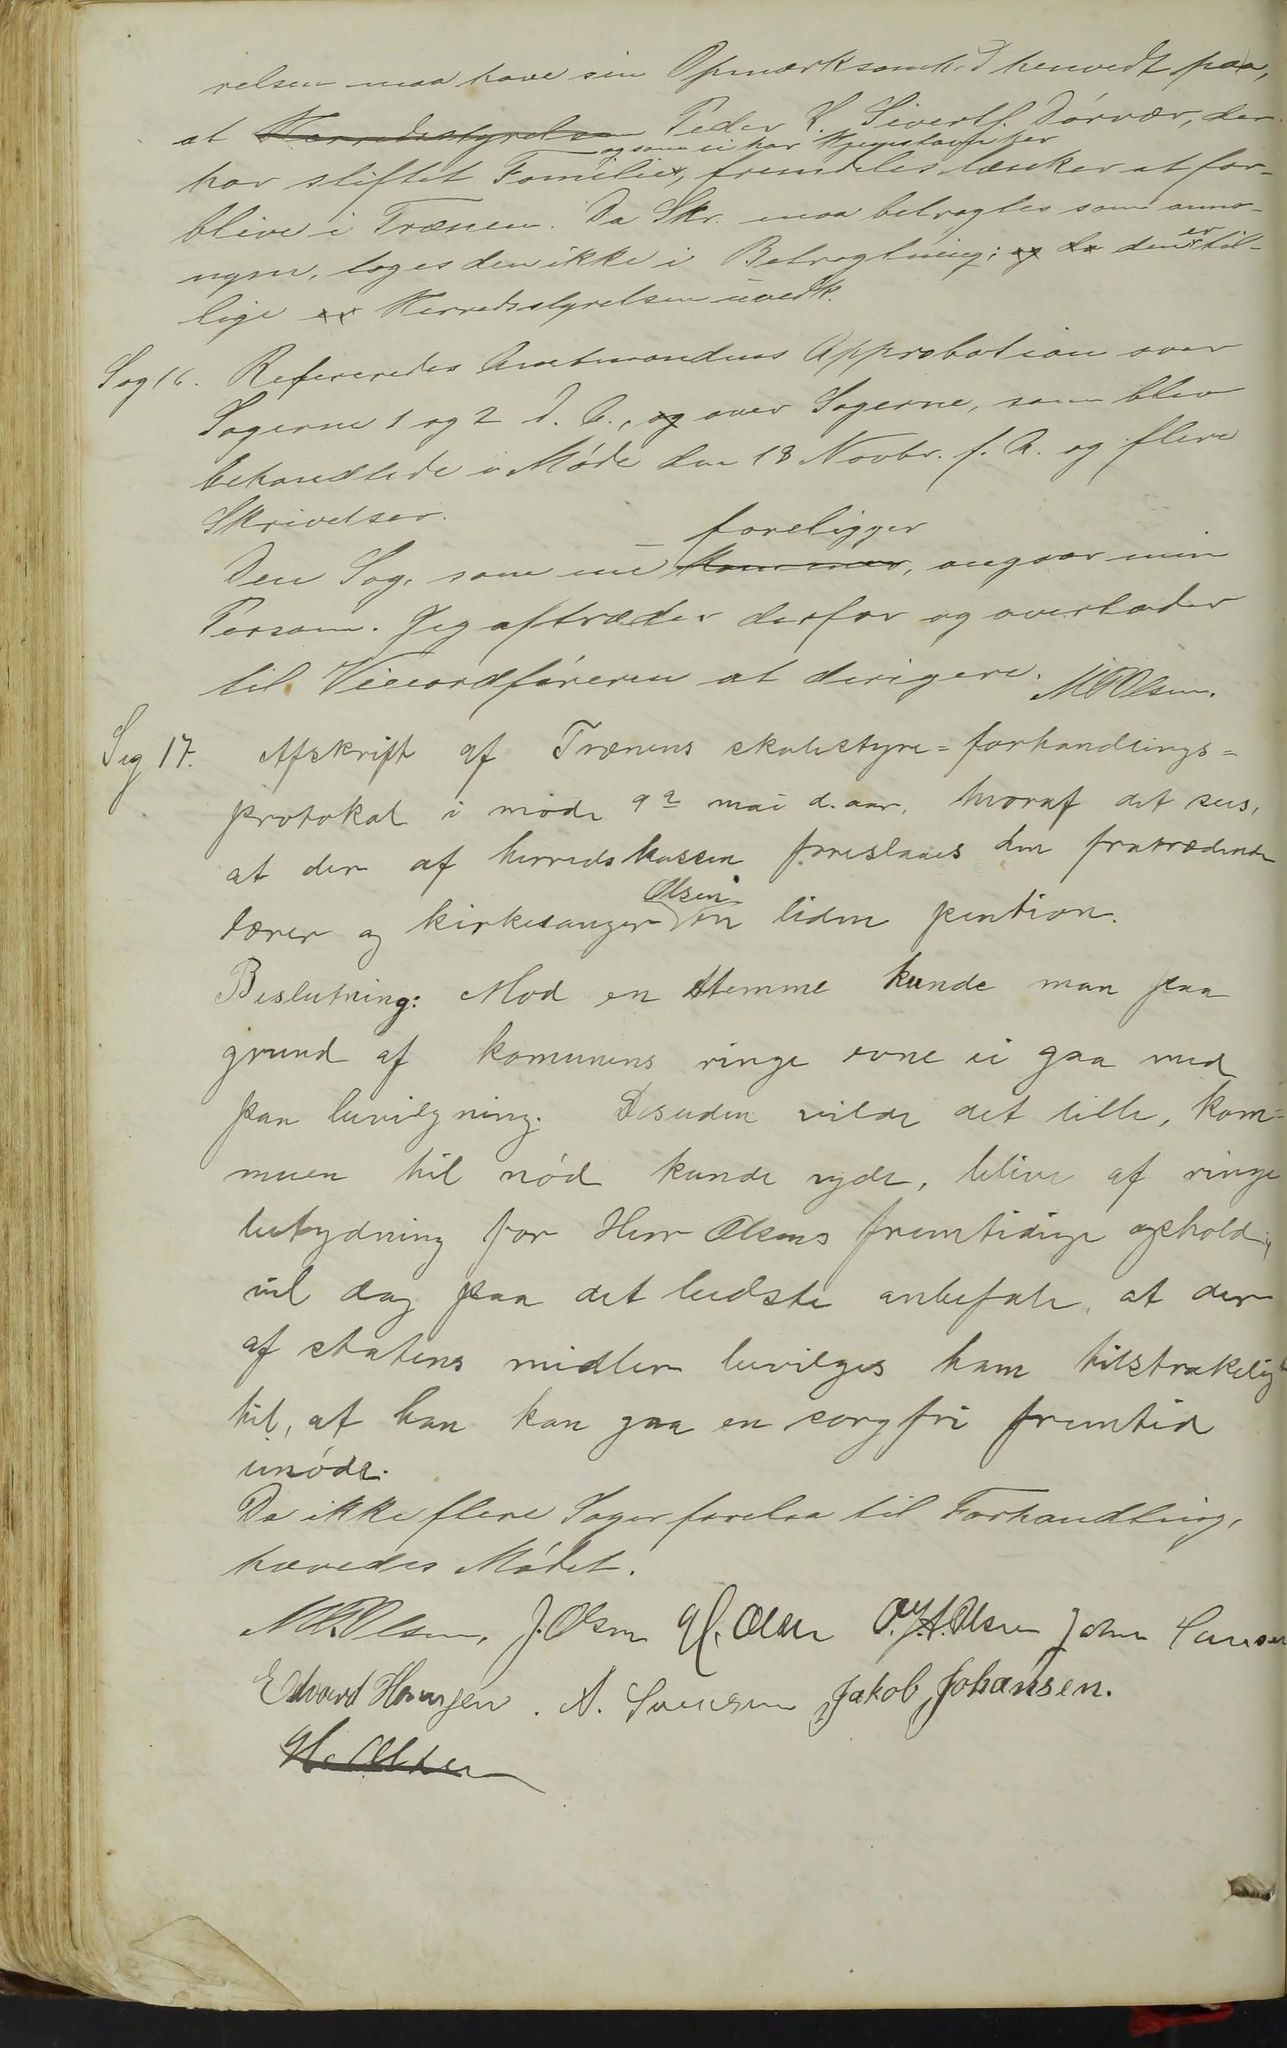 relsen maa have sin Opmærksomh.d henvedt paa,
at Herredsstyrelsen Peder L. Siverts. Dørvær, der
og som ei har Hjemstavn her
har stiftet Familie, fremdeles tænker at for-
blive i Trænen. Da Skr. maa betragtes som anno-
nym, toges den ikke i Betragtning; og da den er til-
lige er Herredsstyrelsen uvedk.
Sag 16. Refereredes Amtmandens Approbation over
Sagerne 1 og 2 d. A., og over Sagerne, som blev
behandlede i Møde den 18 Novbr. f. A. og flere
Skrivelser.
foreligger
Den Sag, som nu kommer, angaar min
Person. Jeg aftræder derfor og overlader
til Viceordføreren at dirigere. MBOlsen.
Sag 17. Afskrift af Trænens skolestyre=forhandlings=
protokol i møde 9de mai d. aar, hvoraf det sees,
at der af herredskassen foreslaaes den fratrædende
Olsen
lærer og kirkesanger en liden pention.
Beslutning: Mod en stemme kunde man paa
grund af komunens ringe evne ei gaa med
paa bevilgning. Desuden vilde det lille, kom=
muen til nød kunde yde, blive af ringe
betydning for Herr Olsens fremtidige ophold,
vil dog paa det bedste anbefale, at der
af statens midler bevilges ham tilstrækelig
til, at han kan gaa en sorgfri fremtid
imøde.
Da ikke flere Sager forelaa til Forhandling,
hævedes Mødet.
MBOlsen, J. Olsen H. Olsen O. J. A. Olsen John Hansen
Edvard Hansen. A. Svensen Jakob Johansen.
H. Olsen